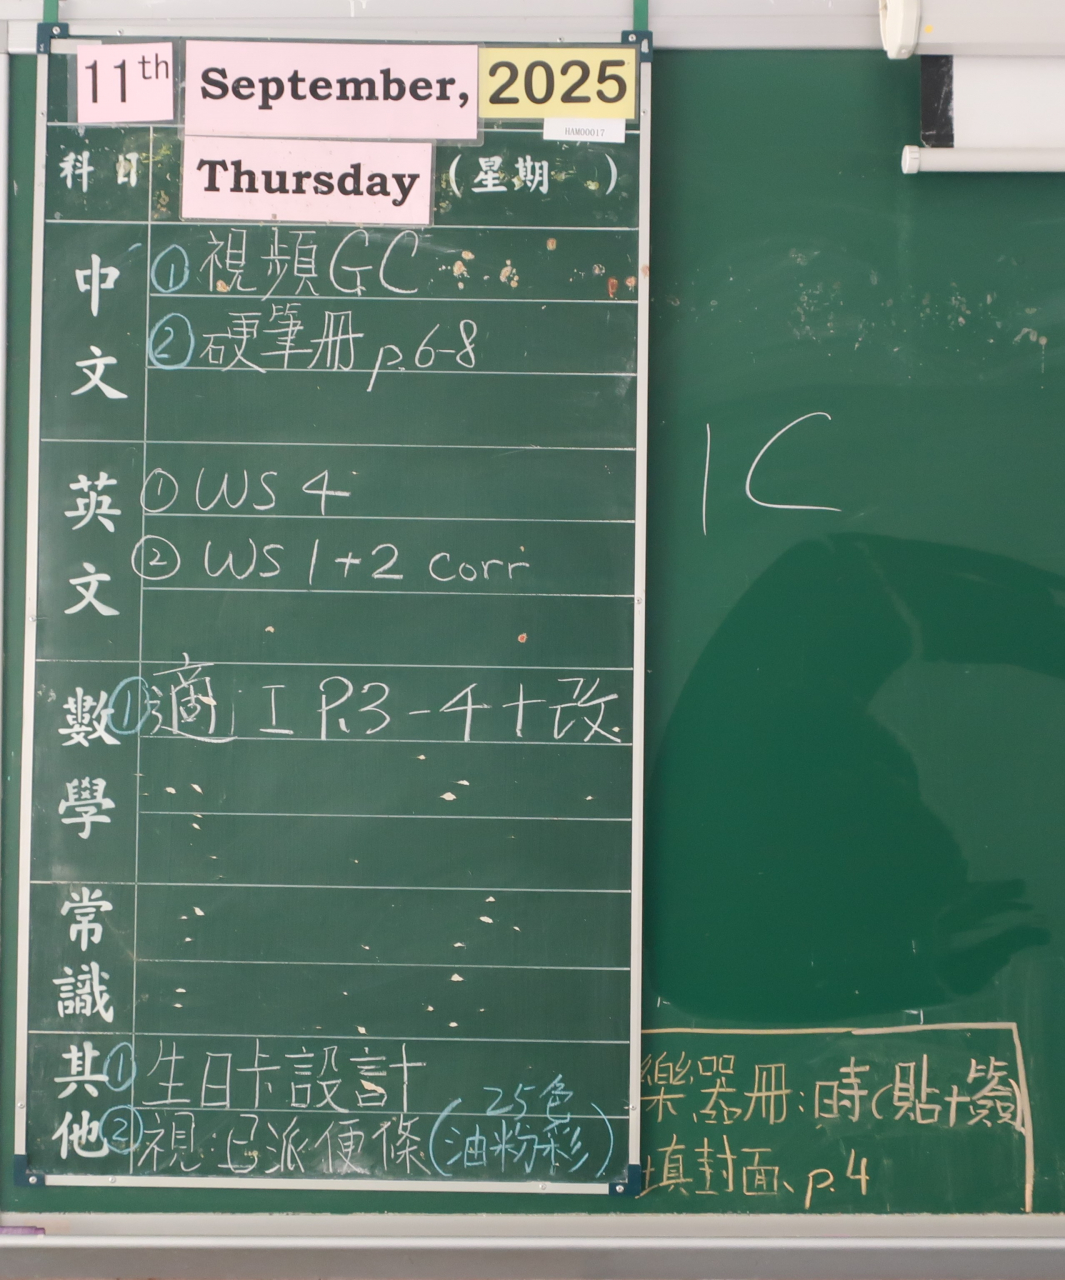 11th September, 2025
HAM00017
科目 Thursday (星期 )
中文
① 視頻GC
② 硬筆冊 p.6-8
英文
① WS 4
② WS 1+2 corr
數學
① 適 I P.3-4+改
常識
其他
① 生日卡設計
② 視:已派便條(25色油粉彩)
1C
樂器冊:時(貼+簽)
填封面、p.4